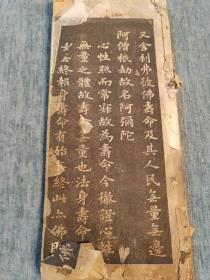 又舍利弗彼佛壽命及其人民無量無邊
阿僧祇劫故名阿彌陀
心性照而常寂故為壽命今徹證心性
無量之體故壽命無量也法身壽命
無始無終報身壽命有始無終此亦佛